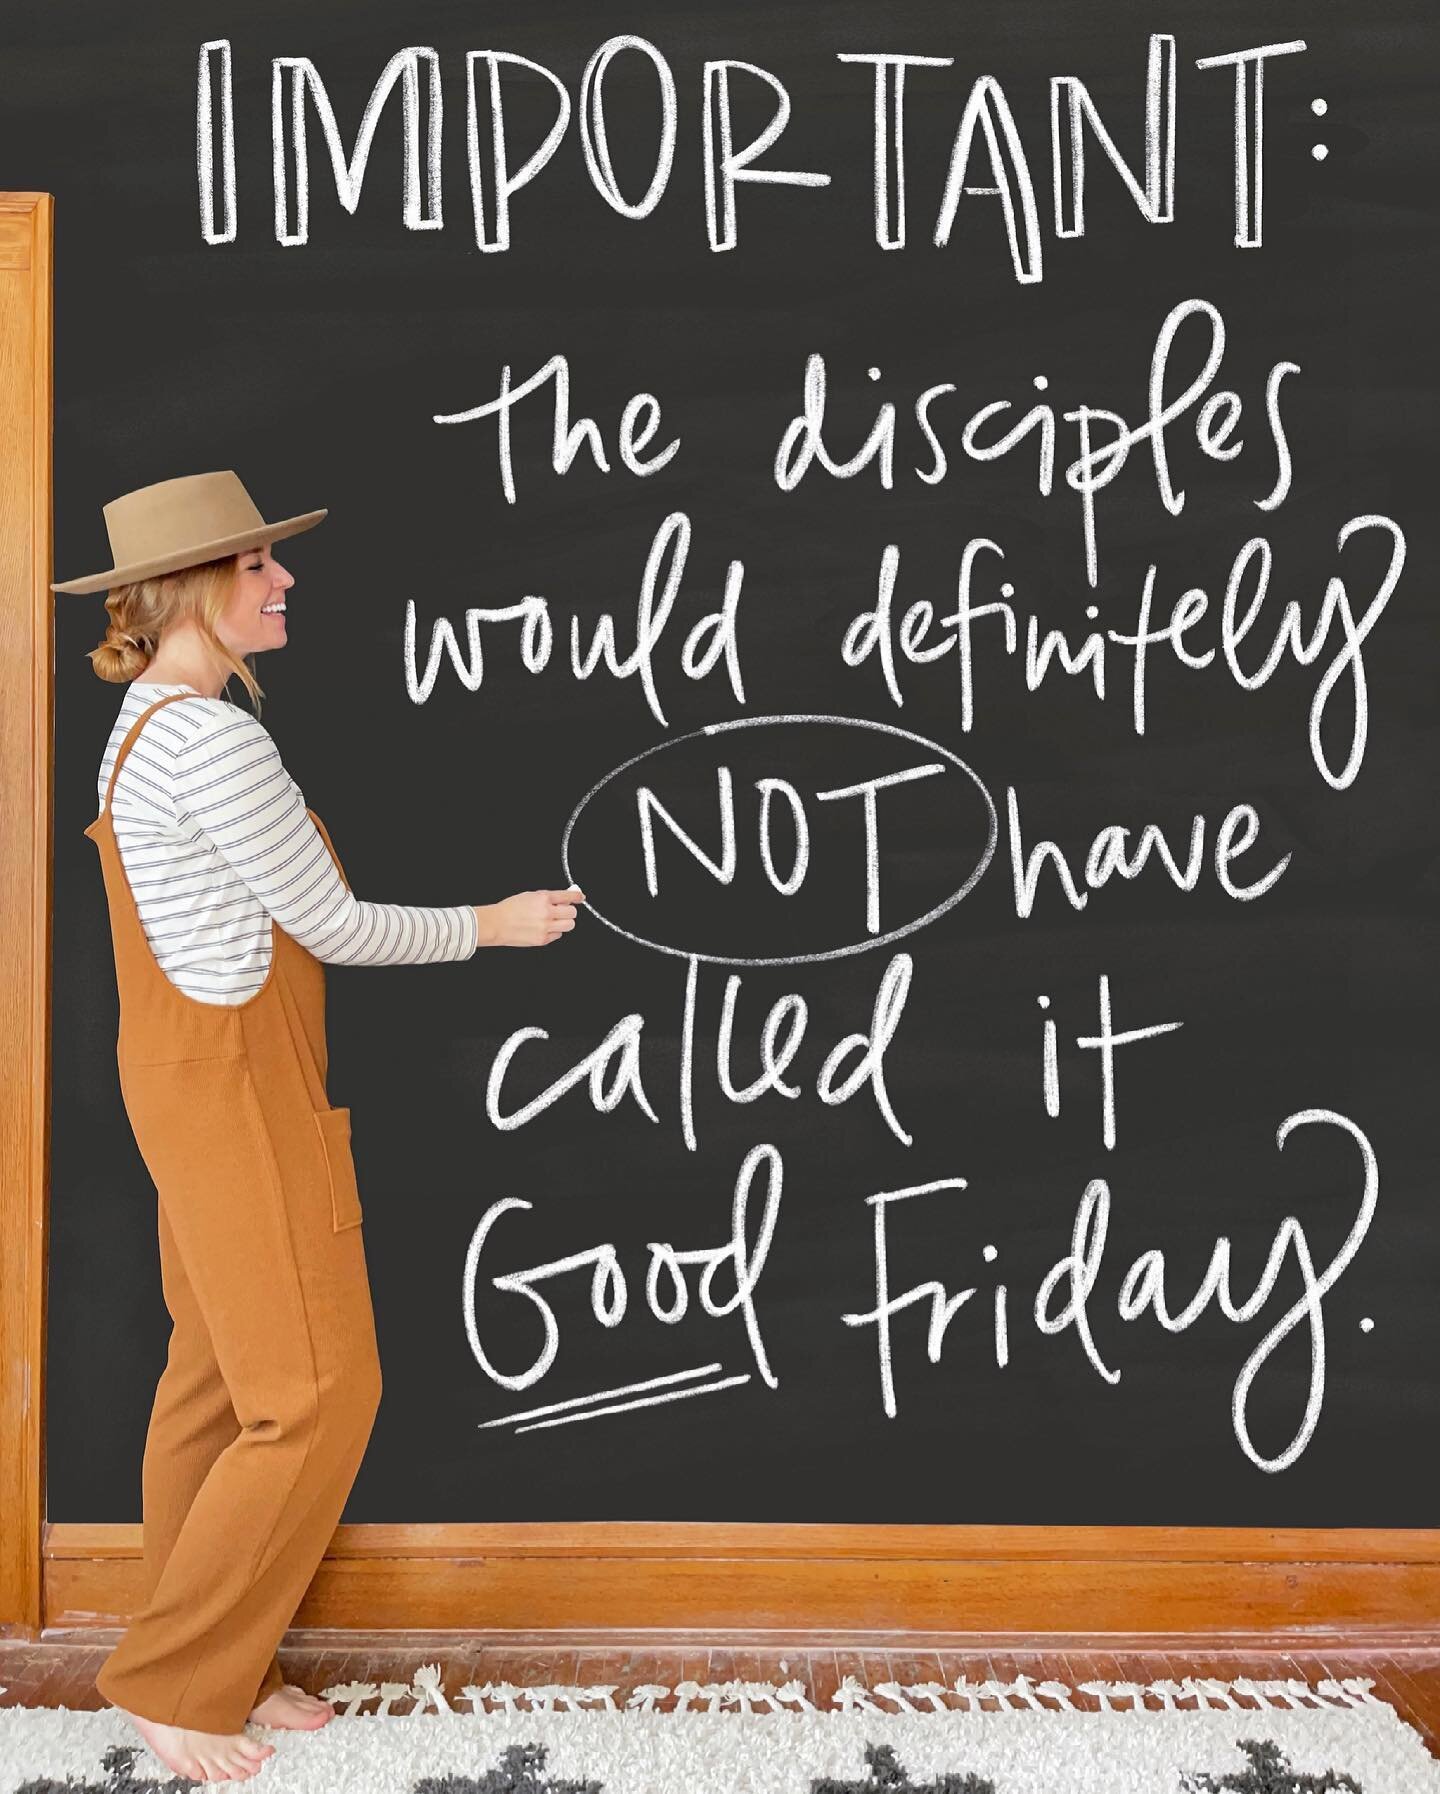 IMPORTANT:
the disciples
would definitely
NOT have
called it
Good Friday.